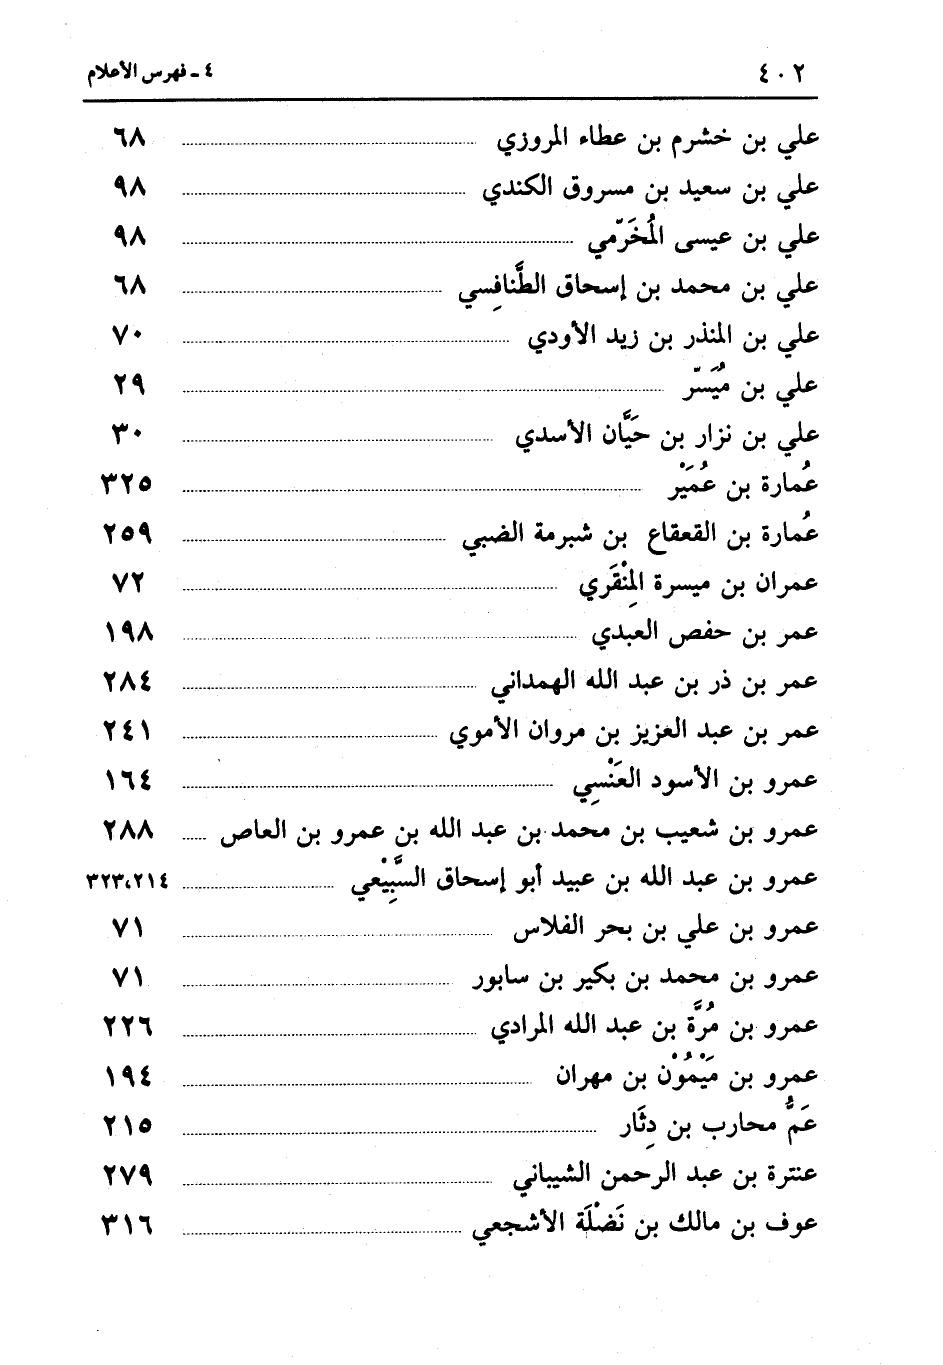 ٤٠٢ ٤ ـ فهرس الأعلام
علي بن خشرم بن عطاء المروزي ........ ٦٨
علي بن سعيد بن مسروق الكندي ........ ٩٨
علي بن عيسى المُخَرّمي ........ ٩٨
علي بن محمد بن إسحاق الطَّنافِسي ........ ٦٨
علي بن المنذر بن زيد الأودي ........ ٧٠
علي بن مُيَسّر ........ ٢٩
علي بن نزار بن حَيَّان الأسدي ........ ٣٠
عُمارة بن عُمَيْر ........ ٣٢٥
عُمارة بن القعقاع بن شبرمة الضبي ........ ٢٥٩
عمران بن ميسرة المِنْقَري ........ ٧٢
عمر بن حفص العبدي ........ ١٩٨
عمر بن ذر بن عبد الله الهمداني ........ ٢٨٤
عمر بن عبد العزيز بن مروان الأموي ........ ٢٤١
عمرو بن الأسود العَنْسِي ........ ١٦٤
عمرو بن شعيب بن محمد بن عبد الله بن عمرو بن العاص ........ ٢٨٨
عمرو بن عبد الله بن عبيد أبو إسحاق السَّبِيْعي ........ ٣٢٣،٢١٤
عمرو بن علي بن بحر الفلاس ........ ٧١
عمرو بن محمد بن بكير بن سابور ........ ٧١
عمرو بن مُرَّة بن عبد الله المرادي ........ ٢٢٦
عمرو بن مَيْمُوْن بن مهران ........ ١٩٤
عَمُّ محارب بن دِثَار ........ ٢١٥
عنترة بن عبد الرحمن الشيباني ........ ٢٧٩
عوف بن مالك بن نَضْلَة الأشجعي ........ ٣١٦